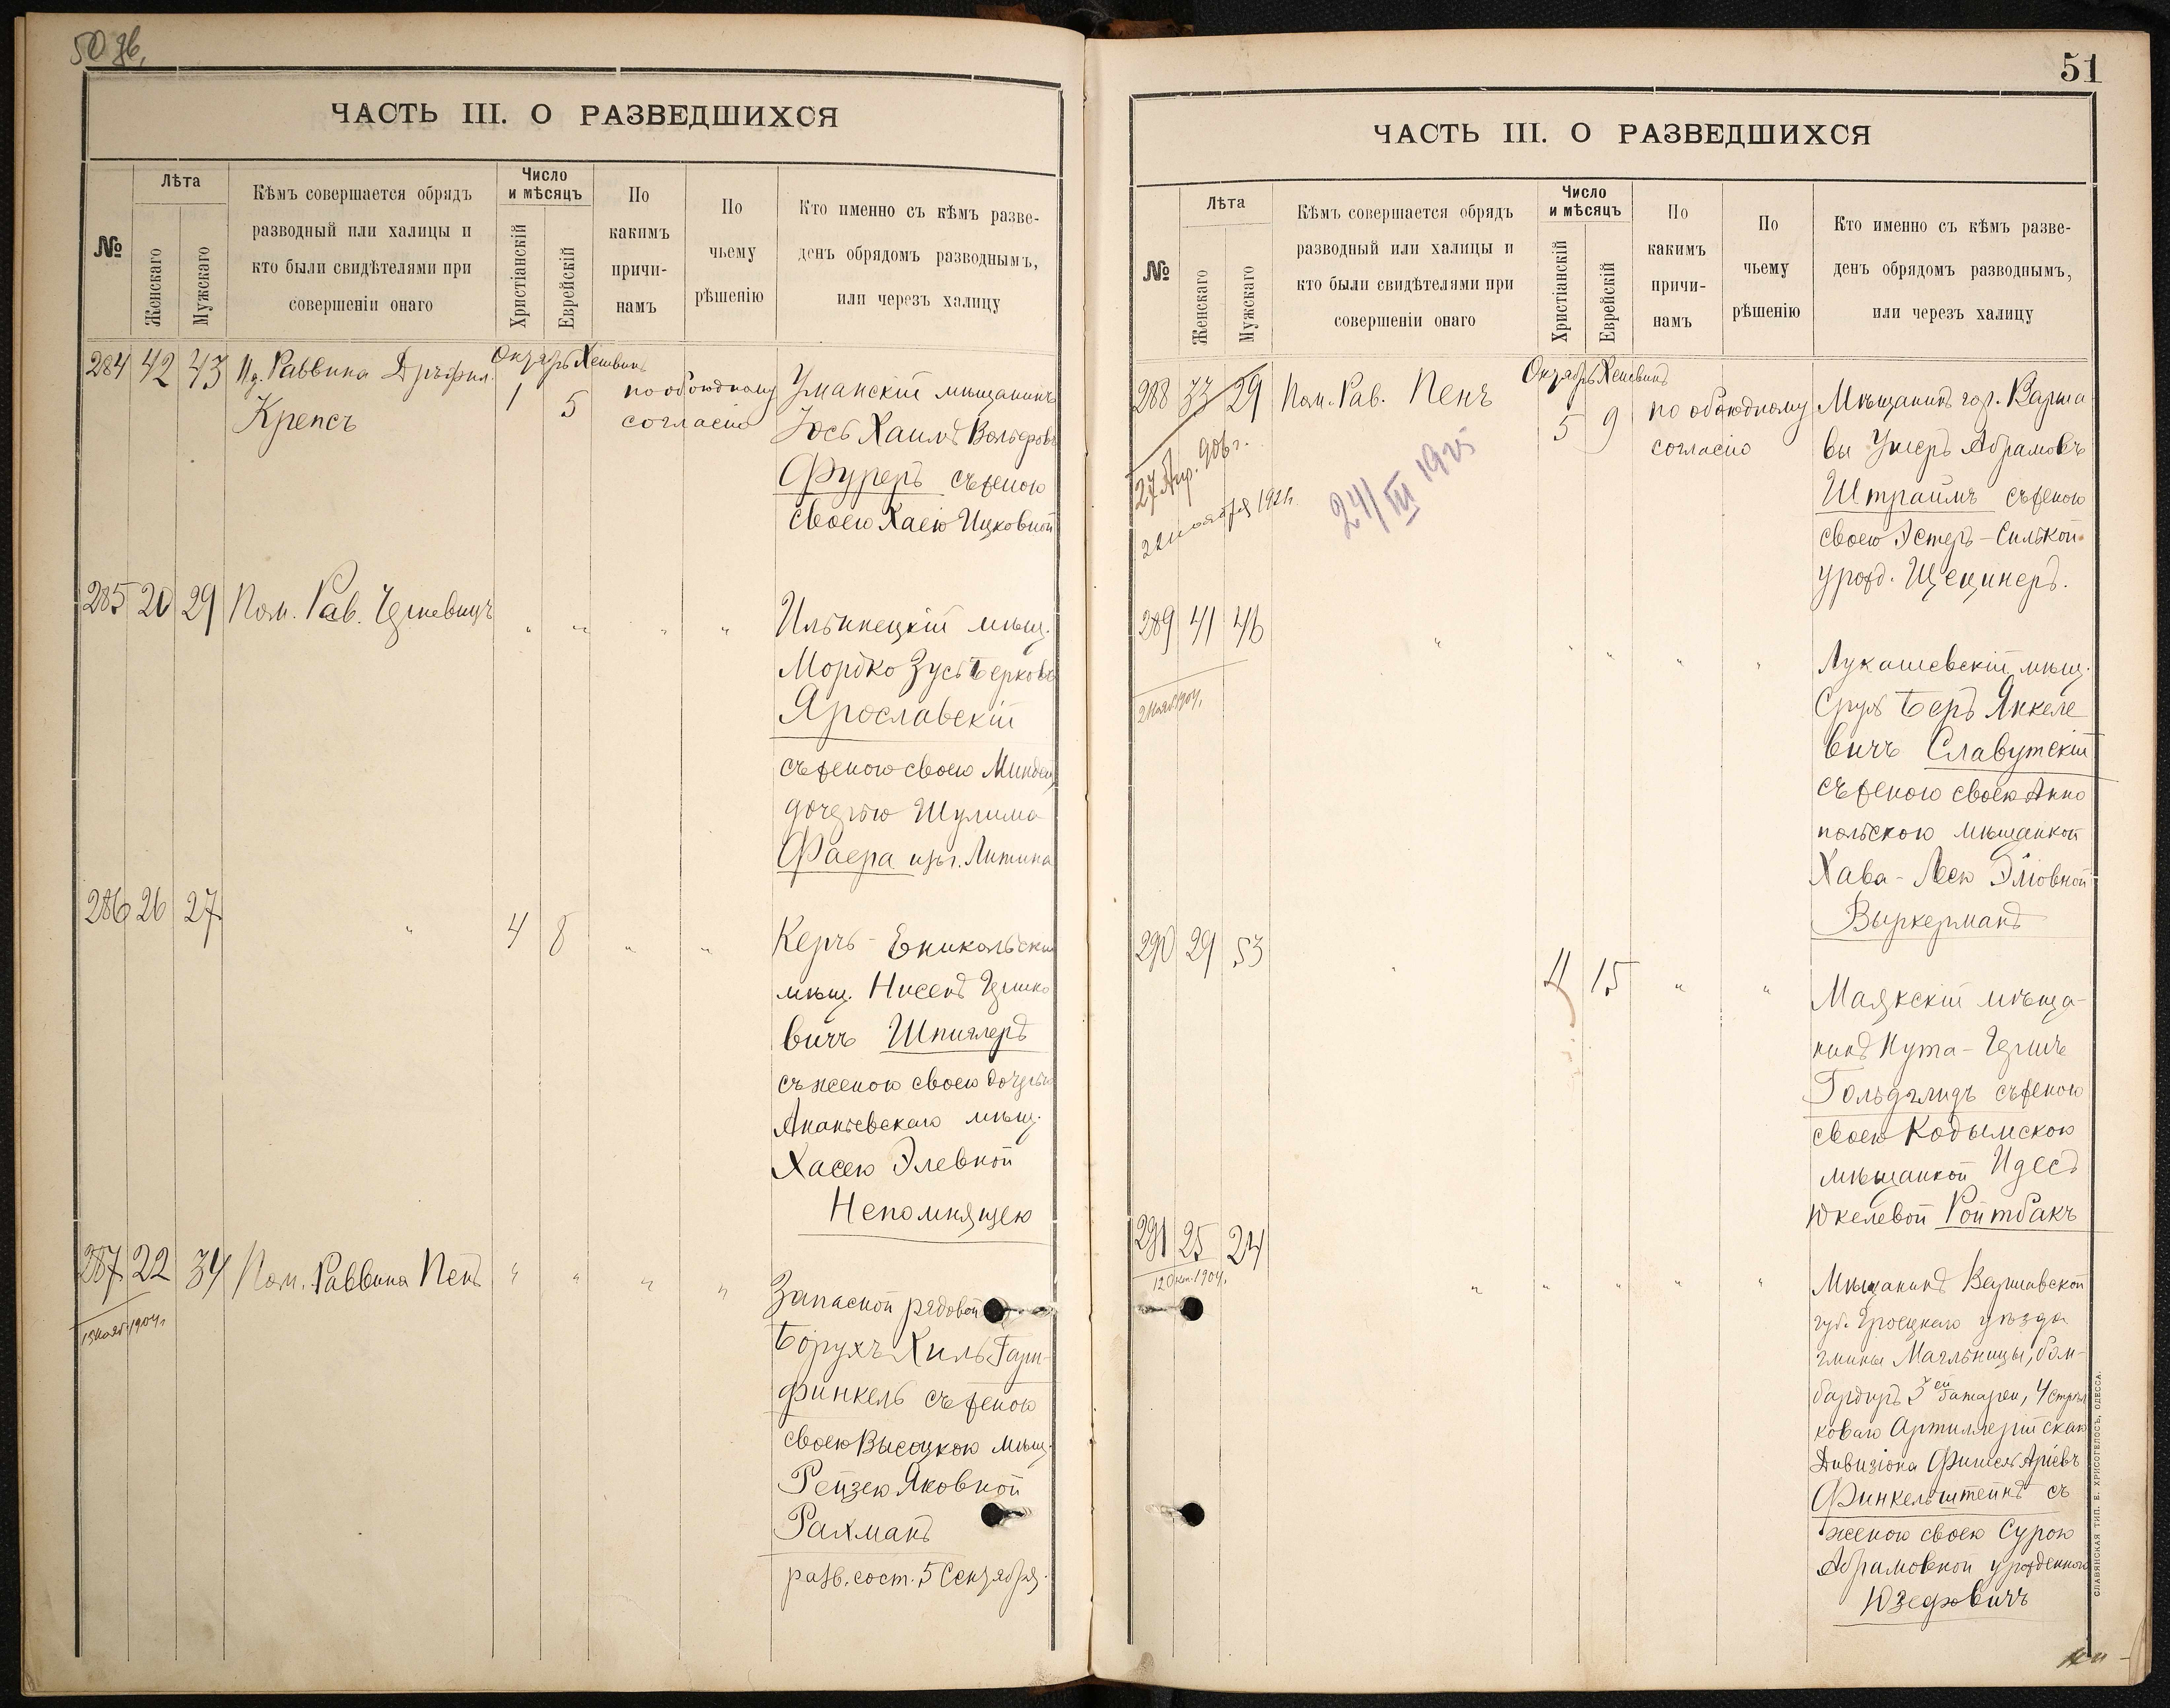 50 зв.
ЧАСТЬ III. О РАЗВЕДШИХСЯ
№
Лѣта
Женскаго
Мужскаго
Кѣмъ совершается обрядъ
разводный или халицы и
кто были свидѣтелями при
совершеніи онаго
Число
и мѣсяцъ
Христіанскій
Еврейскій
По
какимъ
причи-
намъ
По
чьему
рѣшенію
Кто именно съ кѣмъ разве-
денъ обрядомъ разводнымъ,
или черезъ халицу
284 42 43 Раввина
Крепсъ
Октябрь Хешванъ
1 5
по обоюдному
согласію
Уманскій мѣщанинъ
Іось Хаимъ Вольфовъ
Фуреръ съ женою
своею Хаею Ицковной
285 20 29 Пом. Рав.
" " " "
Ильинецкій мѣщ.
Мордко Зусь Берковъ
Ярославскій
съ женою своею Миндею
дочерью Шулима
Фаера изъ г. Литина
286 26 27 " 4 8 " "
Керчь-Еникольскій
мѣщ. Нисенъ Гершко
вичъ Шпиглеръ
съ женою своею дочерью
Ананьевскаго мѣщ.
Хасею Элевной
Непомнящею
287 22 34 Пом. Раввина Пенъ " " " "
13 нояб. 1904 г.
Запасной рядовой
Борухъ Хиль Гарн-
финкель съ женою
своею Высоцкою мѣщ.
Рейзею Яковной
Рахманъ
разв. сост. 5 Сентября.
51
ЧАСТЬ III. О РАЗВЕДШИХСЯ
№
Лѣта
Женскаго
Мужскаго
Кѣмъ совершается обрядъ
разводный или халицы и
кто были свидѣтелями при
совершеніи онаго
Число
и мѣсяцъ
Христіанскій
Еврейскій
По
какимъ
причи-
намъ
По
чьему
рѣшенію
Кто именно съ кѣмъ разве-
денъ обрядомъ разводнымъ,
или черезъ халицу
288 33 29 Пом. Рав. Пенъ
Октябрь Хешванъ
5 9
по обоюдному
согласію
27 Апр. 906 г.
22 ноября 192
24/III 1925
Мѣщанинъ гор. Варша
вы Ушеръ Абрамовъ
Штраймъ съ женою
своею Эстеръ-Силькой
урожд. Щецинеръ.
289 41 46 " " " " "
2 нояб. 1904.
Лукашевскій мѣщ.
Сруль Беръ Янкеле
вичъ Славутскій
съ женою своею Анно
польскою мѣщанкой
Хава-Леею Эліовной
Выркерманъ
290 29 53 " 11 15 " "
Маякскій мѣща-
нинъ Нута-Гершъ
Гольдглидъ съ женою
своею Кодымскою
мѣщанкой Идесъ
Юкелевой Ройтбакъ
291 25 24 " " " " "
12 Окт. 1904.
Мѣщанинъ Варшавской
губ. Гроецкаго уѣзда
гмины Магльницы, бом-
бардиръ 3ей батареи, 4 стрѣл
коваго Артиллерійскаго
Дивизіона Фишель Аріевъ
Финкельштейнъ съ
женою своею Сурою
Абрамовной урожденной
Юзефовичъ
СЛАВЯНСКАЯ ТИП. Е. ХРИСОГЕЛОСЪ, ОДЕССА.